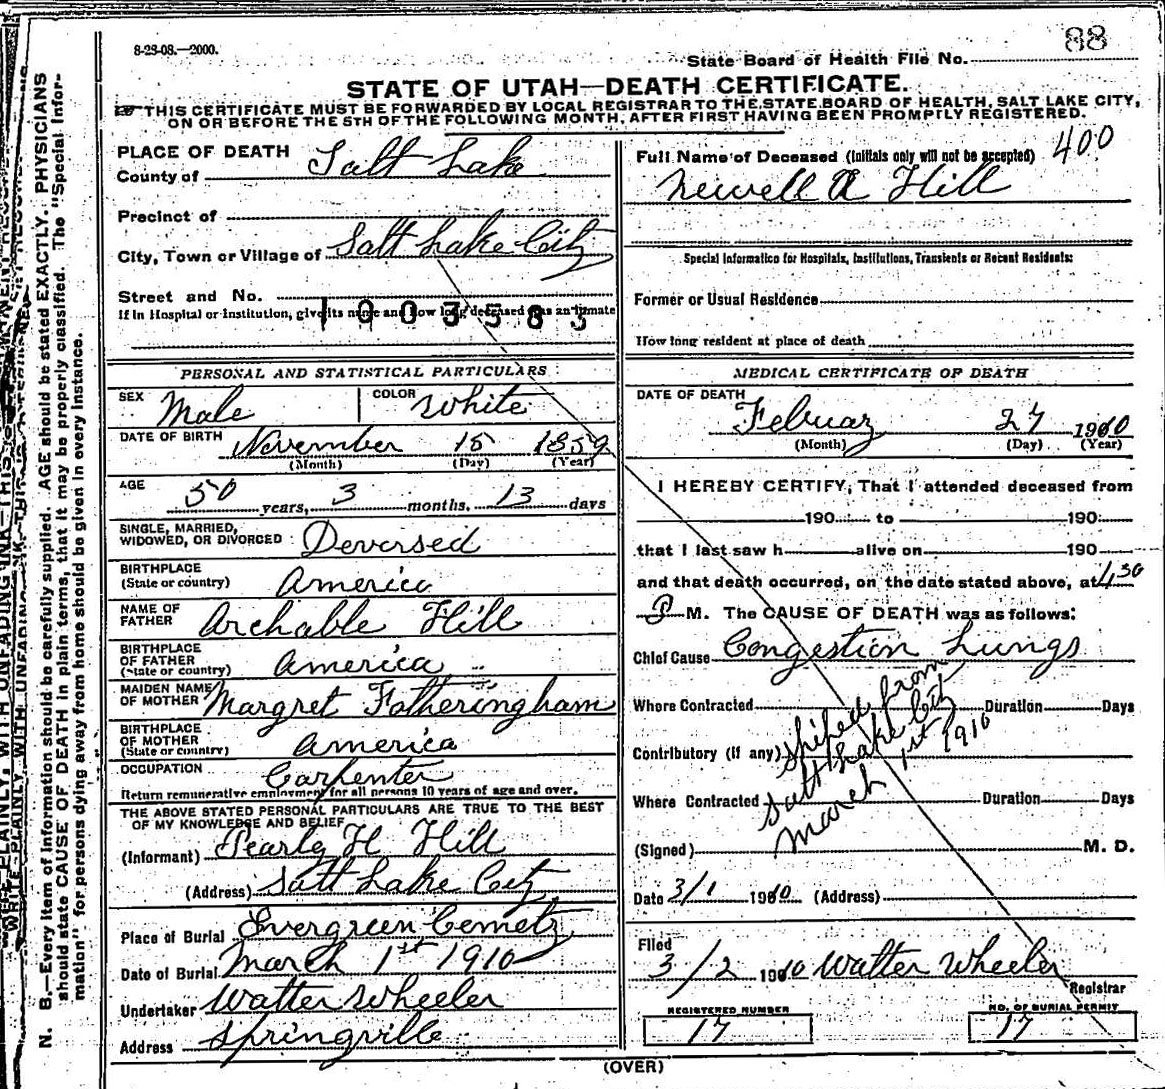 88
8-23-08.—2000.
State Board of Health File No.
STATE OF UTAH—DEATH CERTIFICATE.
THIS CERTIFICATE MUST BE FORWARDED BY LOCAL REGISTRAR TO THE STATE BOARD OF HEALTH, SALT LAKE CITY,
ON OR BEFORE THE 5TH OF THE FOLLOWING MONTH, AFTER FIRST HAVING BEEN PROMPTLY REGISTERED.
PLACE OF DEATH
County of Salt Lake
Precinct of
City, Town or Village of Salt Lake City
Street and No.
1003583
If in Hospital or Institution, give its name and how long deceased was an inmate
PERSONAL AND STATISTICAL PARTICULARS
SEX Male COLOR White
DATE OF BIRTH November 15 1859
(Month) (Day) (Year)
AGE 50 years, 3 months, 13 days
SINGLE, MARRIED,
WIDOWED, OR DIVORCED Deversed
BIRTHPLACE
(State or country) America
NAME OF
FATHER Archable Hill
BIRTHPLACE
OF FATHER
(State or country) America
MAIDEN NAME
OF MOTHER Margret Fotheringham
BIRTHPLACE
OF MOTHER
(State or country) America
OCCUPATION Carpenter
Return remunerative employment for all persons 10 years of age and over.
THE ABOVE STATED PERSONAL PARTICULARS ARE TRUE TO THE BEST
OF MY KNOWLEDGE AND BELIEF
(Informant) Pearly H Hill
(Address) Salt Lake City
Place of Burial Evergreen Cemetz
Date of Burial March 1st 1910
Undertaker Walter Wheeler
Address Springville
Full Name of Deceased (Initials only will not be accepted) 400
Newell A Hill
Special Information for Hospitals, Institutions, Transients or Recent Residents:
Former or Usual Residence
How long resident at place of death
MEDICAL CERTIFICATE OF DEATH
DATE OF DEATH
Februaz 27 1910
(Month) (Day) (Year)
I HEREBY CERTIFY, That I attended deceased from
190 to 190
that I last saw h alive on 190
and that death occurred, on the date stated above, at 4,30
P M. The CAUSE OF DEATH was as follows:
Chief Cause Congestion Lungs
Where Contracted Duration Days
Contributory (if any)
Where Contracted Duration Days
Shiped from
Salt Lake City
March 1st 1910
(Signed) M. D.
Date 3/1 1910 (Address)
Filed
3/2 1910 Walter Wheeler
Registrar
REGISTERED NUMBER
17
NO. OF BURIAL PERMIT
17
(OVER)
N. B.—Every item of information should be carefully supplied. AGE should be stated EXACTLY. PHYSICIANS
should state CAUSE OF DEATH in plain terms, that it may be properly classified. The "Special Infor-
mation" for persons dying away from home should be given in every instance.
WRITE PLAINLY, WITH UNFADING INK—THIS